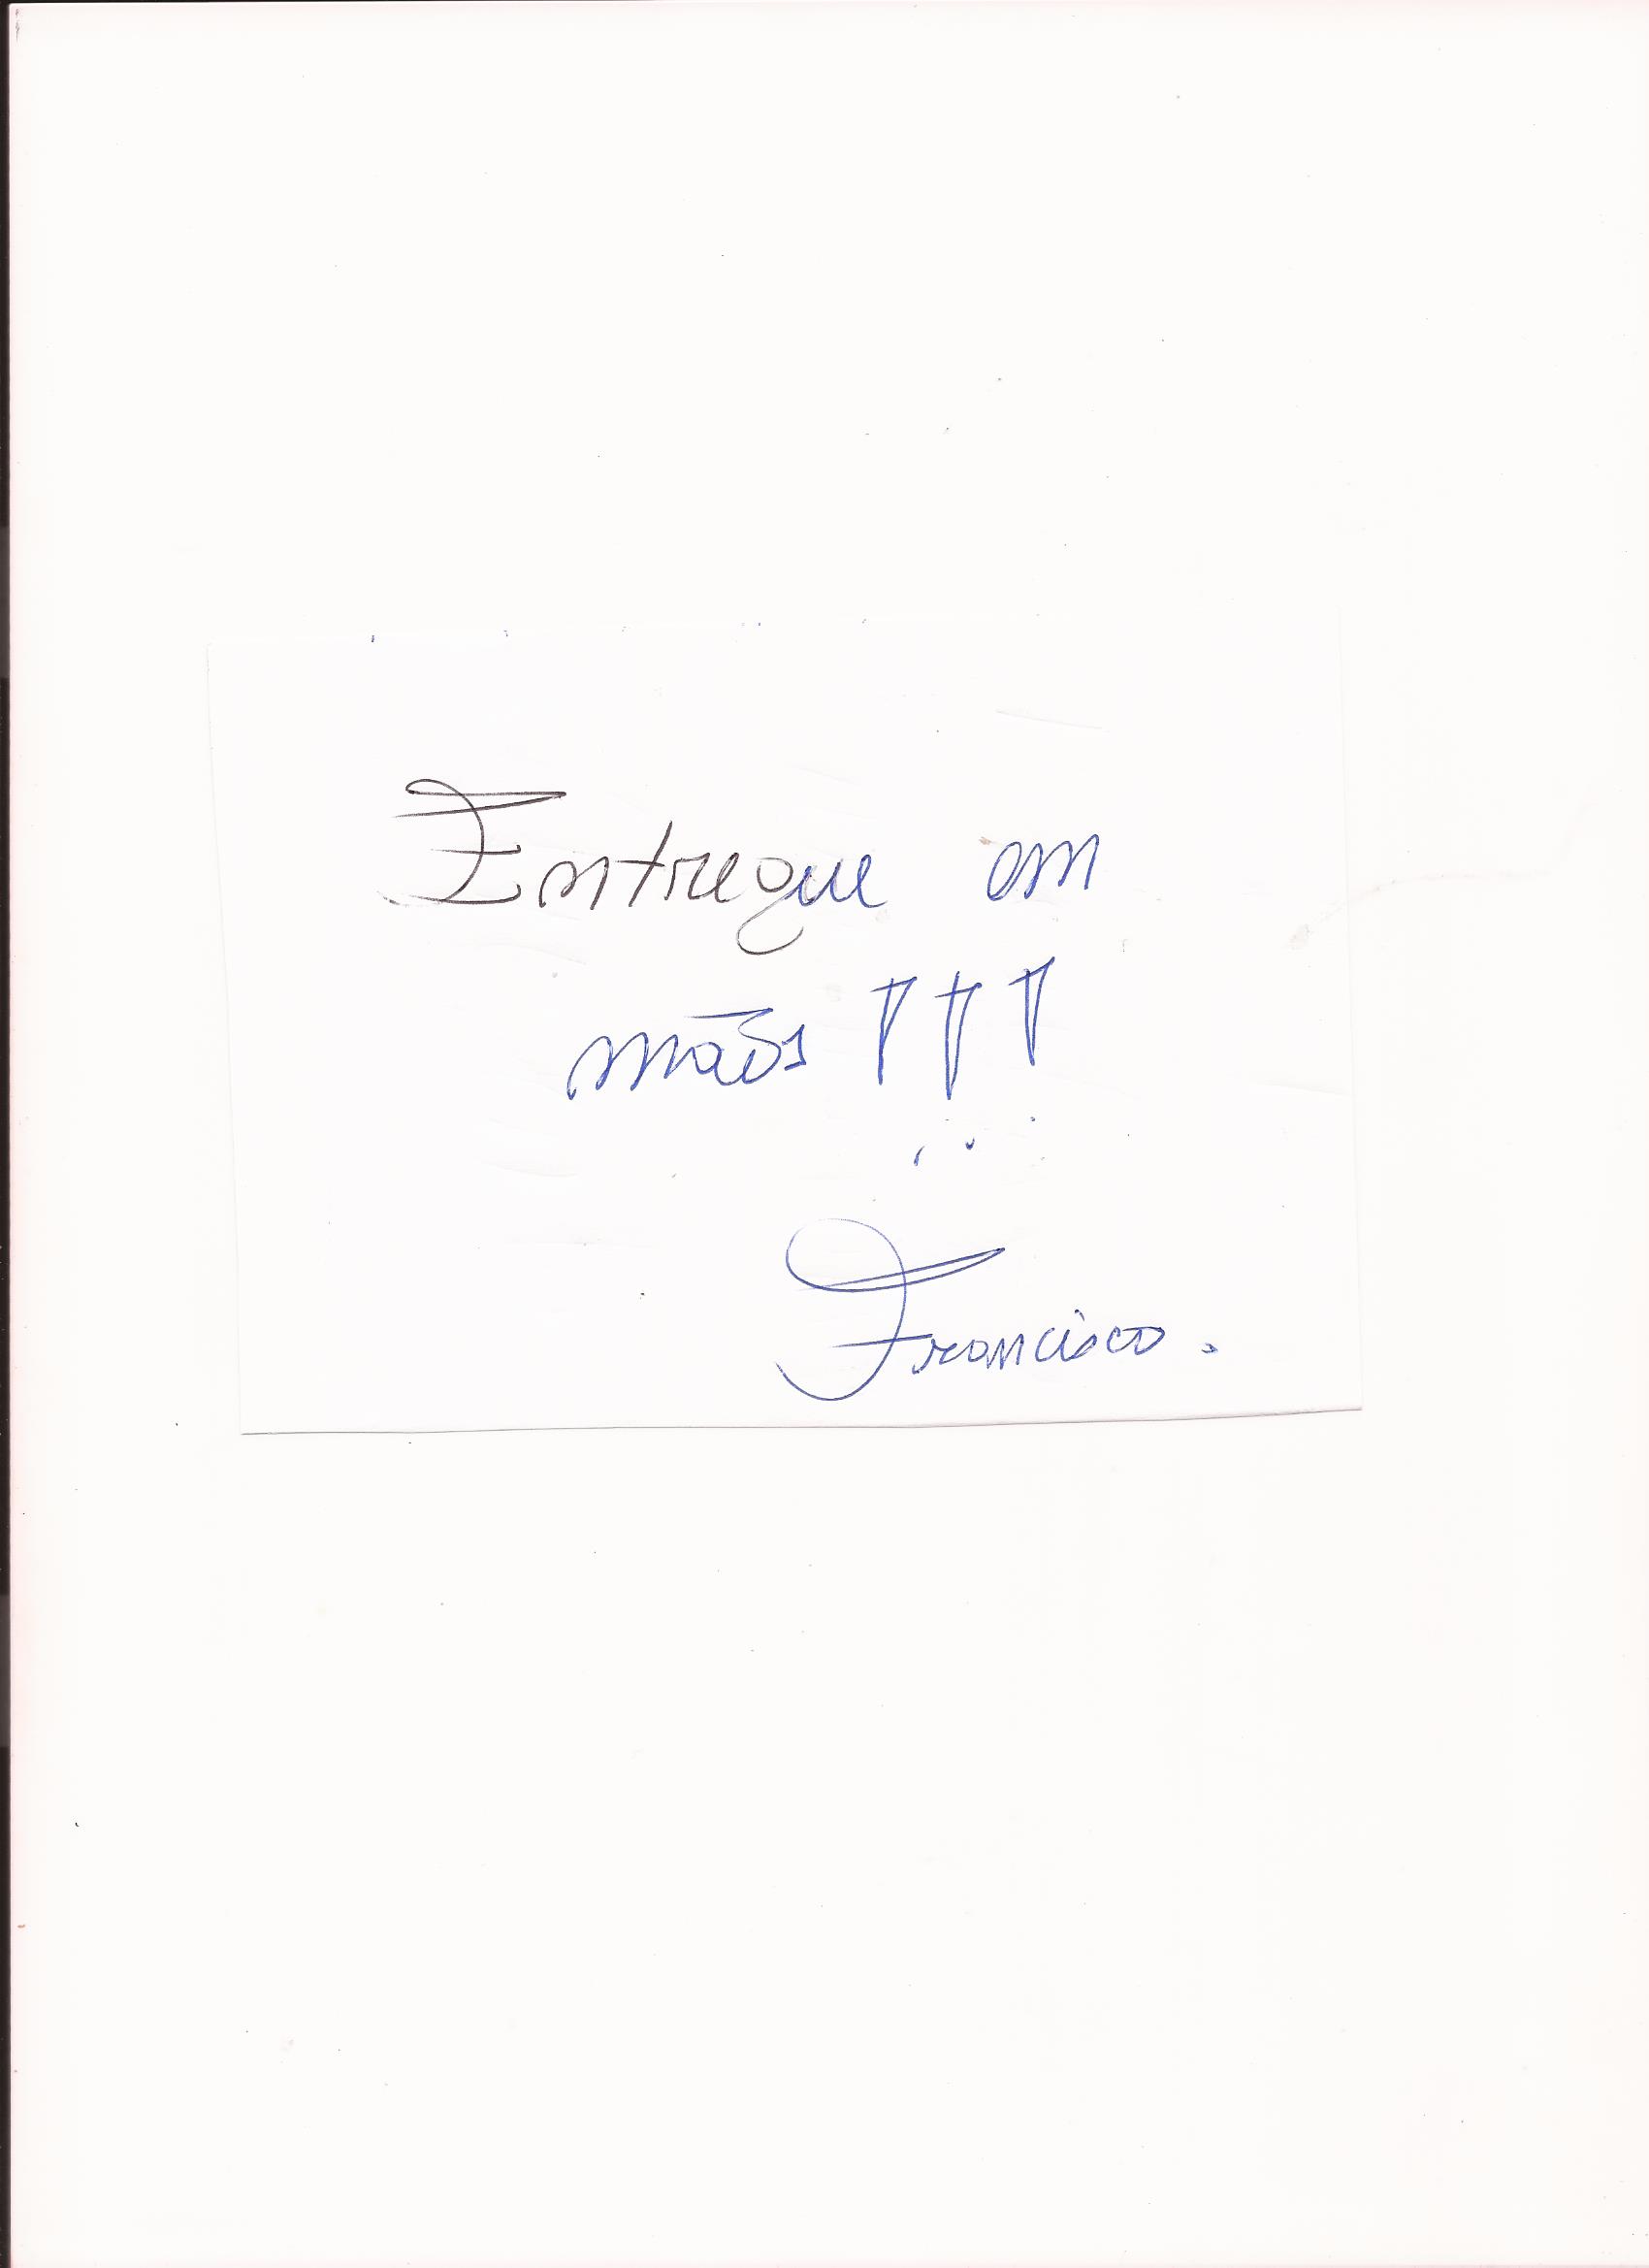 Entregue em
mãos !!!
Francisco.